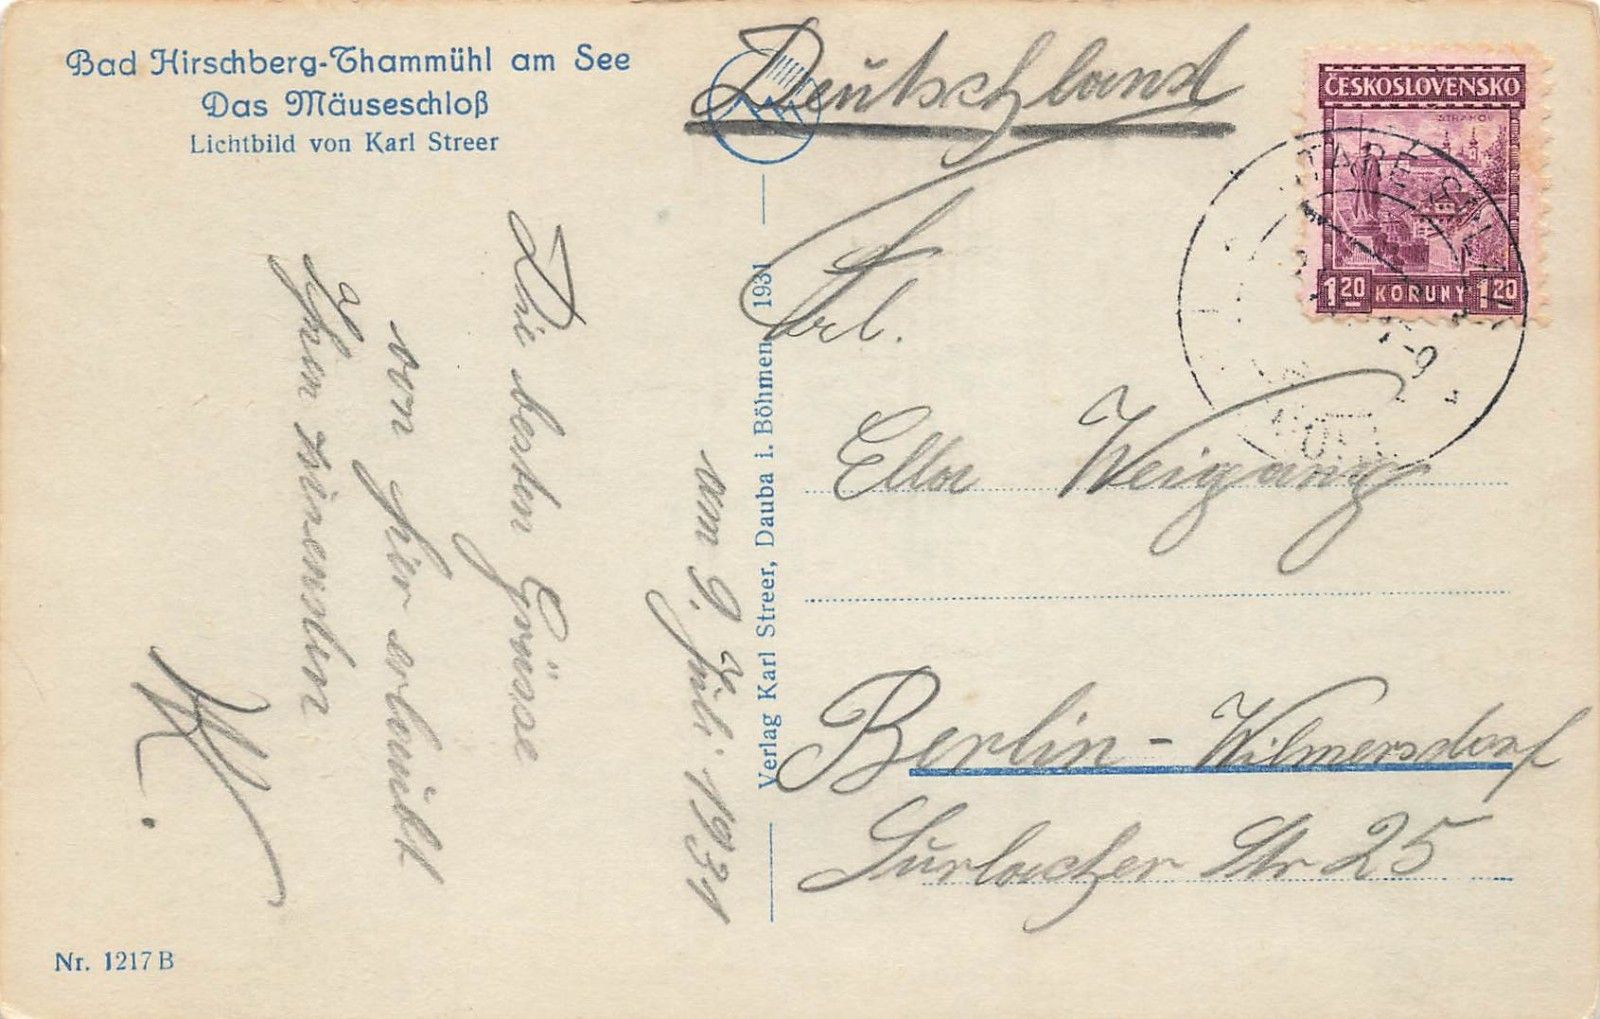 Bad Hirschberg-Thammühl am See
Das Mäuseschloß
Lichtbild von Karl Streer
Deutschland
ČESKOSLOVENSKO
STRAHOV
1 20 KORUNY 1 20
STARÉ SPL
Frl.
Ella Weigang
Berlin - Wilmersdorf
Str 25
Verlag Karl Streer, Dauba i. Böhmen 1931
am 9. Juli 1931
Die besten Grüsse
von hier erlaubt
Ihnen
K.
Nr. 1217 B